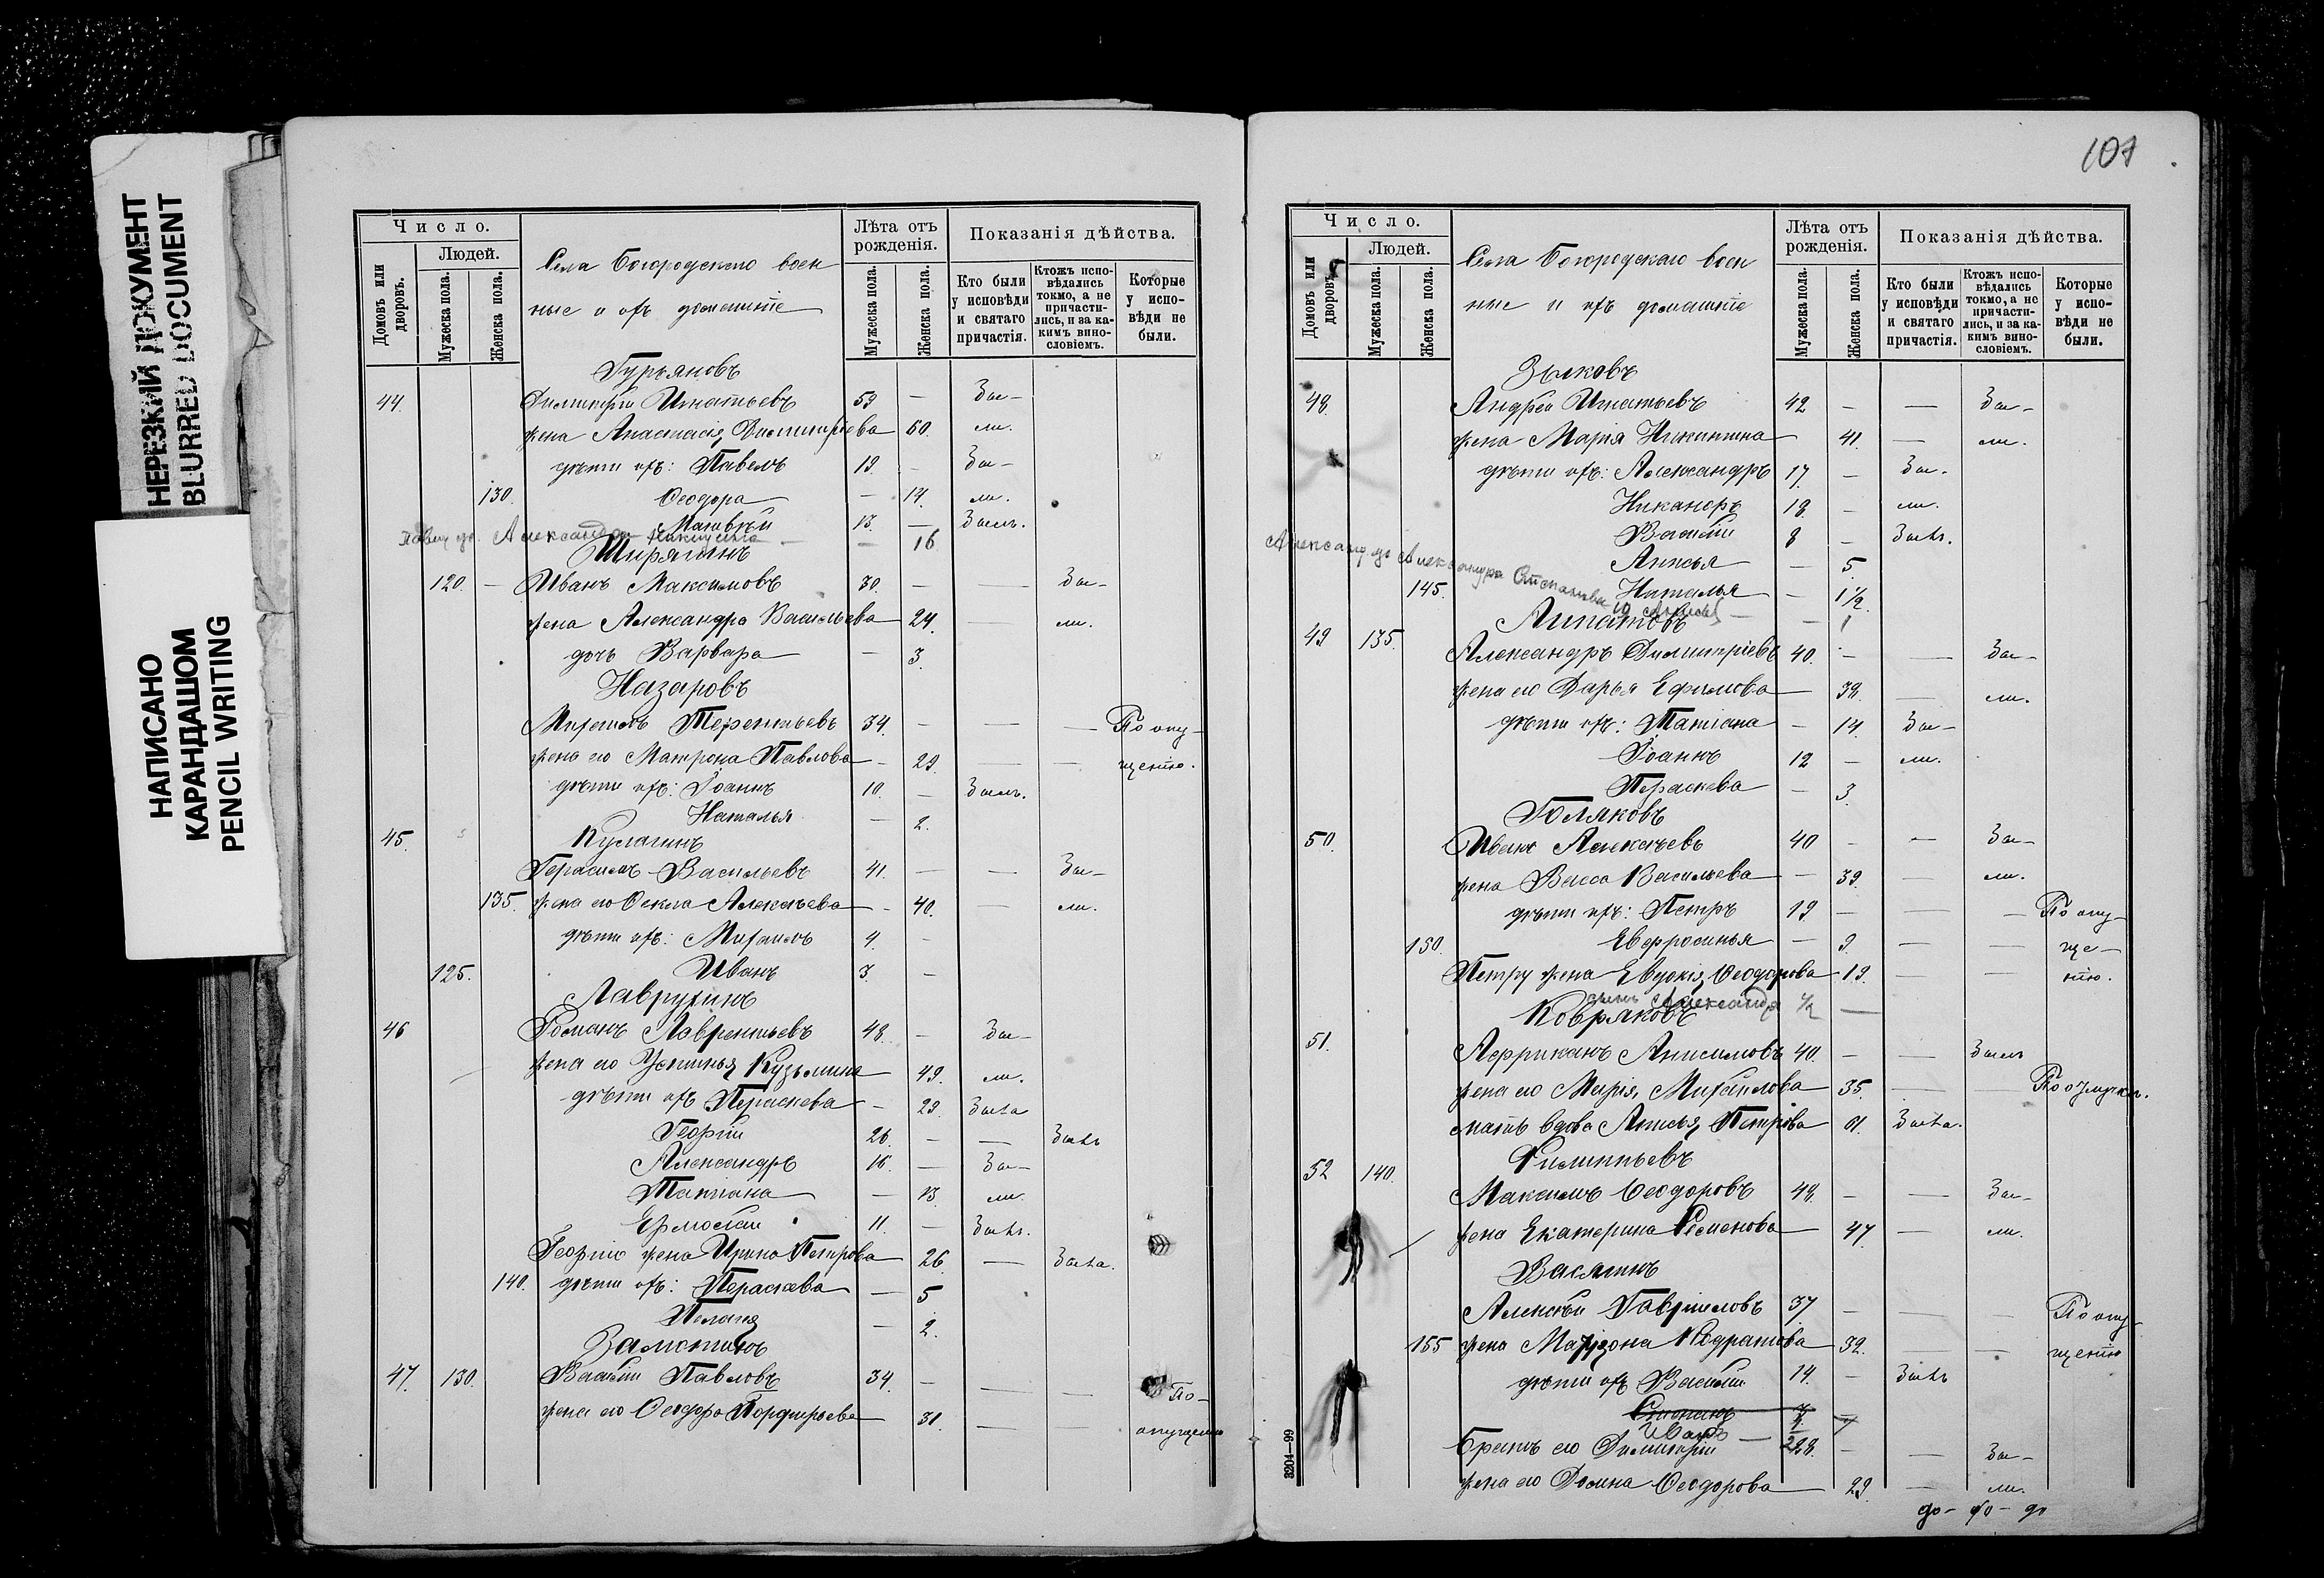 НЕРЕЗКИЙ ДОКУМЕНТ
BLURRED DOCUMENT
НАПИСАНО
КАРАНДАШОМ
PENCIL WRITING
Число.
Людей.
Домовъ или дворовъ.
Мужеска пола.
Женска пола.
Села Богородскаго воен
ные и ихъ домашніе
Лѣта отъ рожденія.
Мужеска пола.
Женска пола.
Показанія дѣйства.
Кто были у исповѣди и святаго причастія.
Ктожъ исповѣдались токмо, а не причастились, и за какимъ винословіемъ.
Которые у исповѣди не были.
Гурьяновъ
44. Димитрій Игнатьевъ 59 — Бы-
жена Анастасія Димитріева 60. ли.
дѣти ихъ: Павелъ 19. — Бы-
130. Ѳеодора — 17. ли.
Матвѣй 13. — Былъ.
Александра Никитина — — 16
Ширягинъ
120. — Иванъ Максимовъ 30. — — Бы-
жена Александра Васильева 24. — ли.
дочь Варвара — 3.
Назаровъ
Терентьевъ 34. — — — По опу-
жена его Матрона Павлова — 29. — — щенію.
дѣти ихъ: Іоаннъ 10. — Былъ.
Наталья — 2.
45. Кулагинъ
Герасимъ Васильевъ 41. — — Бы-
135. жена его Ѳекла Алексѣева — 40. — ли.
дѣти ихъ: Михаилъ 4. —
125. Иванъ 3. —
Лаврухинъ
46 Романъ Лаврентьевъ 48. — Бы-
жена его Устинья Кузьмина 49. ли.
дѣти ихъ Пераскева — 29. Была
Георгій 26. — — Былъ
Александръ 16. — Бы-
Татіана — 13. ли.
Ермолай 11. — Былъ.
Георгію жена Ирина Петрова 26. — Была.
140. дѣти ихъ: Пераскева — 5
Пелагія — 2.
Замотинъ
47. 130. Василій Павловъ 34. — — — По-
жена его Ѳеодора Порфирьева 31. — — опущенію
107
Число.
Людей.
Домовъ или дворовъ.
Мужеска пола.
Женска пола.
Села Богородскаго воен
ные и ихъ домашніе
Лѣта отъ рожденія.
Мужеска пола.
Женска пола.
Показанія дѣйства.
Кто были у исповѣди и святаго причастія.
Ктожъ исповѣдались токмо, а не причастились, и за какимъ винословіемъ.
Которые у исповѣди не были.
Зыковъ
48. Андрей Игнатьевъ 42 — — Бы-
жена Марія Никитина 41. — ли.
дѣти ихъ: Александръ 17. — Бы-
Никаноръ 18. — ли.
Василій 8 — Былъ.
Анисья — 5.
145. Наталья — 1½.
Александра Степанова — 1
Липатовъ
49 135. Александръ Димитріевъ 40. — — Бы-
жена его Дарья Ефимова 38. — ли.
дѣти ихъ: Татіана — 14. Бы-
Іоаннъ 12 — ли.
Пераскева — 3.
Голяковъ
50. Иванъ Алексѣевъ 40 — — Бы-
жена Васса Васильева — 39. — ли.
дѣти ихъ: Петръ 19 — — — По опу-
150. Евфросинья — 9. — — ще-
Петру жена Евдокія Ѳеодорова 19. — — нію.
сынъ Александръ ½ —
Ковряковъ
51. Африканъ Анисимовъ 40. — — Былъ
жена его Марія Михайлова 35. — По отлучкѣ.
мать вдова Анисья Петрова 61. Была.
Филиппьевъ
52 140. Максимъ Ѳеодоровъ 48. — — Бы-
жена Екатерина Семенова 47 — ли.
Васягинъ
Алексѣй Гавріиловъ 37 — — — По опу-
155 жена 39. — — щенію
дѣти ихъ Василій 14. — Былъ
Степанъ
Иванъ —
братъ его Димитрій 28. — — Бы-
жена его Домна Ѳеодорова 29. — ли.
до- бо- до
3204—99